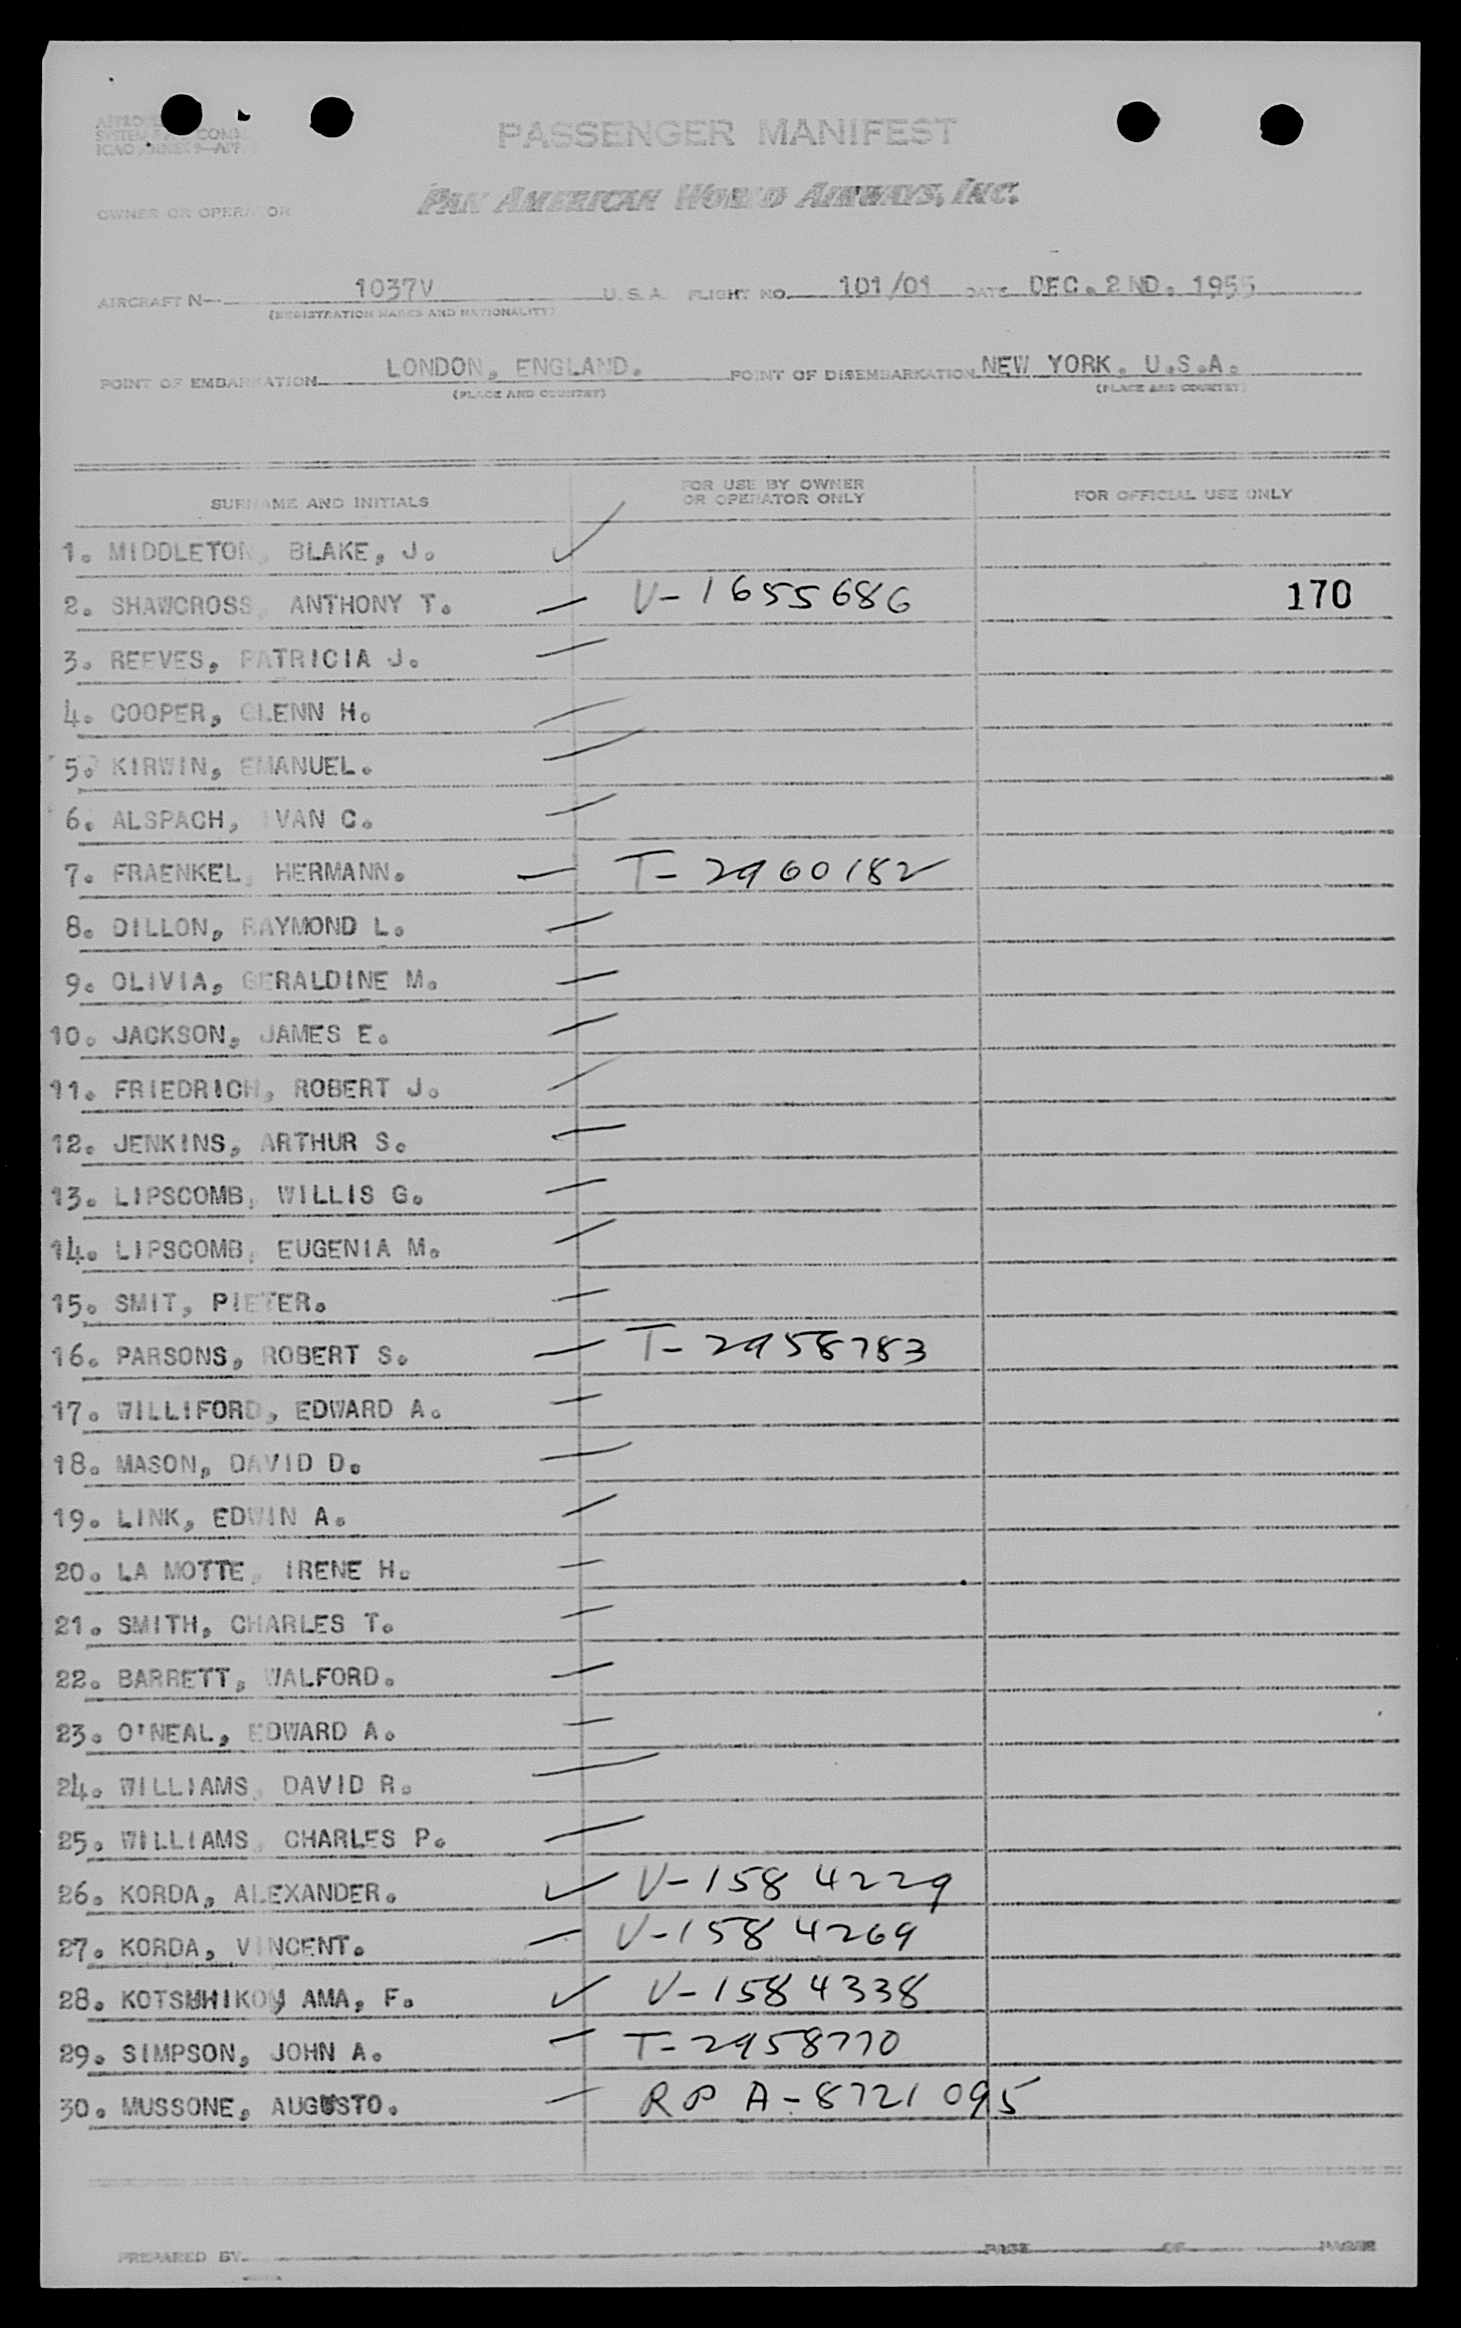 PASSENGER MANIFEST
PAN AMERICAN WORLD AIRWAYS, INC.
OWNER OR OPERATOR
AIRCRAFT N— 1037V U.S.A. FLIGHT NO. 101/01 DATE DEC. 2ND. 1955
(REGISTRATION MARKS AND NATIONALITY)
POINT OF EMBARKATION LONDON, ENGLAND. POINT OF DISEMBARKATION NEW YORK. U.S.A.
(PLACE AND COUNTRY) (PLACE AND COUNTRY)
SURNAME AND INITIALS FOR USE BY OWNER OR OPERATOR ONLY FOR OFFICIAL USE ONLY
1. MIDDLETON, BLAKE, J.
2. SHAWCROSS, ANTHONY T. — V-1655686 170
3. REEVES, PATRICIA J.
4. COOPER, GLENN H.
5. KIRWIN, EMANUEL.
6. ALSPACH, IVAN C.
7. FRAENKEL, HERMANN. — T-2960182
8. DILLON, RAYMOND L.
9. OLIVIA, GERALDINE M.
10. JACKSON, JAMES E.
11. FRIEDRICH, ROBERT J.
12. JENKINS, ARTHUR S.
13. LIPSCOMB, WILLIS G.
14. LIPSCOMB, EUGENIA M.
15. SMIT, PIETER.
16. PARSONS, ROBERT S. — T-2958783
17. WILLIFORD, EDWARD A.
18. MASON, DAVID D.
19. LINK, EDWIN A.
20. LA MOTTE, IRENE H.
21. SMITH, CHARLES T.
22. BARRETT, WALFORD.
23. O'NEAL, EDWARD A.
24. WILLIAMS, DAVID R.
25. WILLIAMS, CHARLES P.
26. KORDA, ALEXANDER. V-1584229
27. KORDA, VINCENT. — V-1584269
28. AMA, F. V-1584338
29. SIMPSON, JOHN A. — T-2958770
30. MUSSONE, AUGUSTO. — RP A-8721095
PREPARED BY PAGE OF PAGES